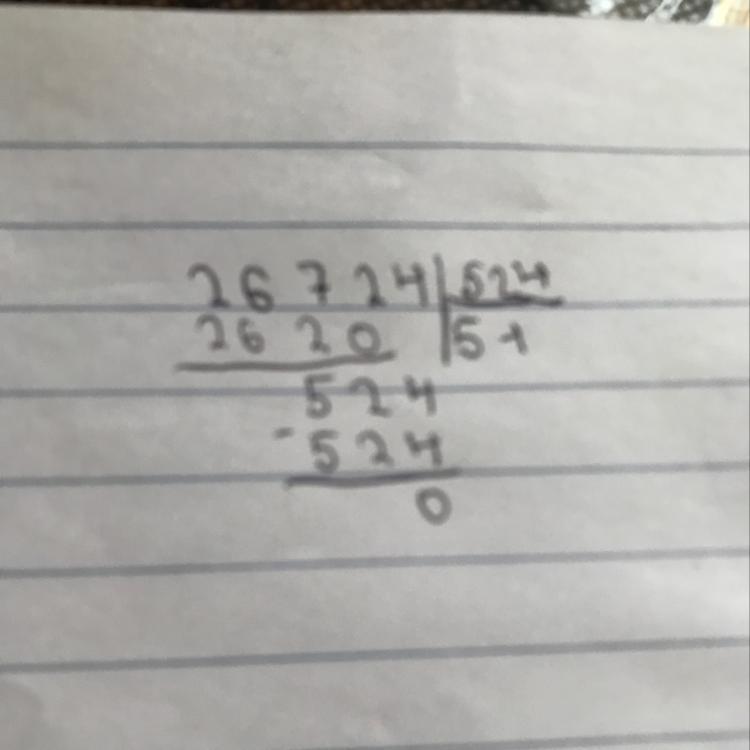 26724 524
2620 51
524
- 524
0